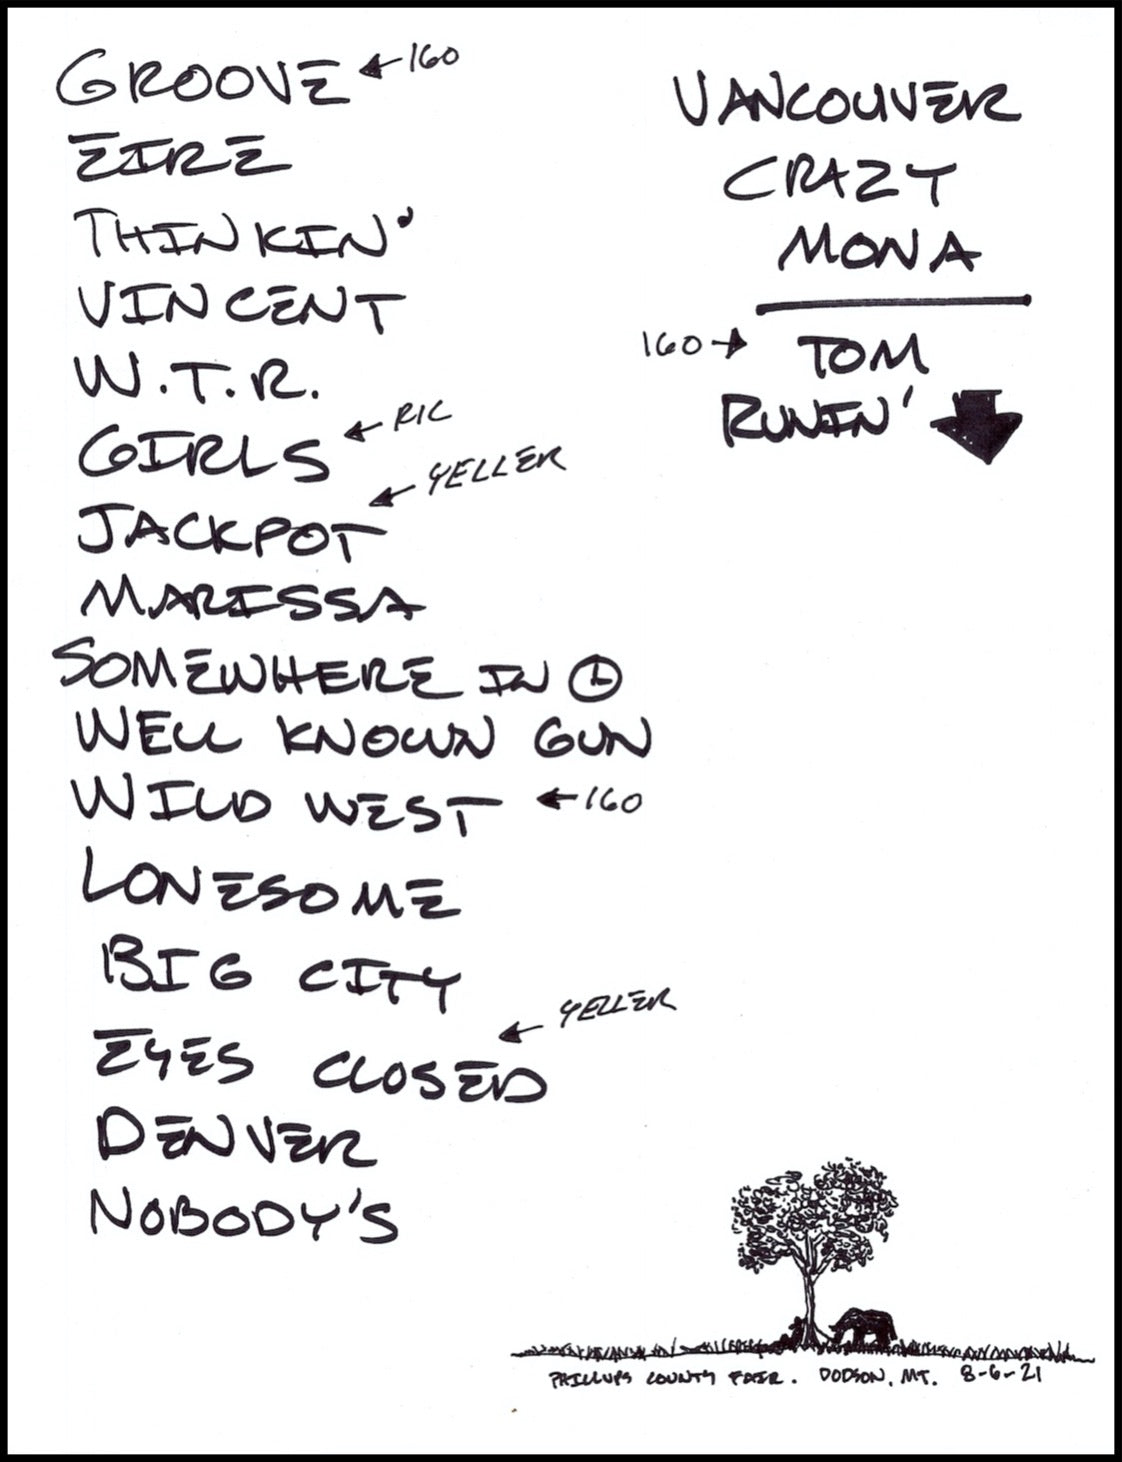 GROOVE ←160
EIRE
THINKIN'
VINCENT
W.T.R.
GIRLS ← RIC
JACKPOT ← YELLER
MARISSA
SOMEWHERE IN
WELL KNOWN GUN
WILD WEST ←160
LONESOME
BIG CITY
EYES CLOSED ← YELLER
DENVER
NOBODY'S
VANCOUVER
CRAZY
MONA
160→ TOM
RUNIN'
PHILLIPS COUNTY FAIR. DODSON, MT. 8-6-21